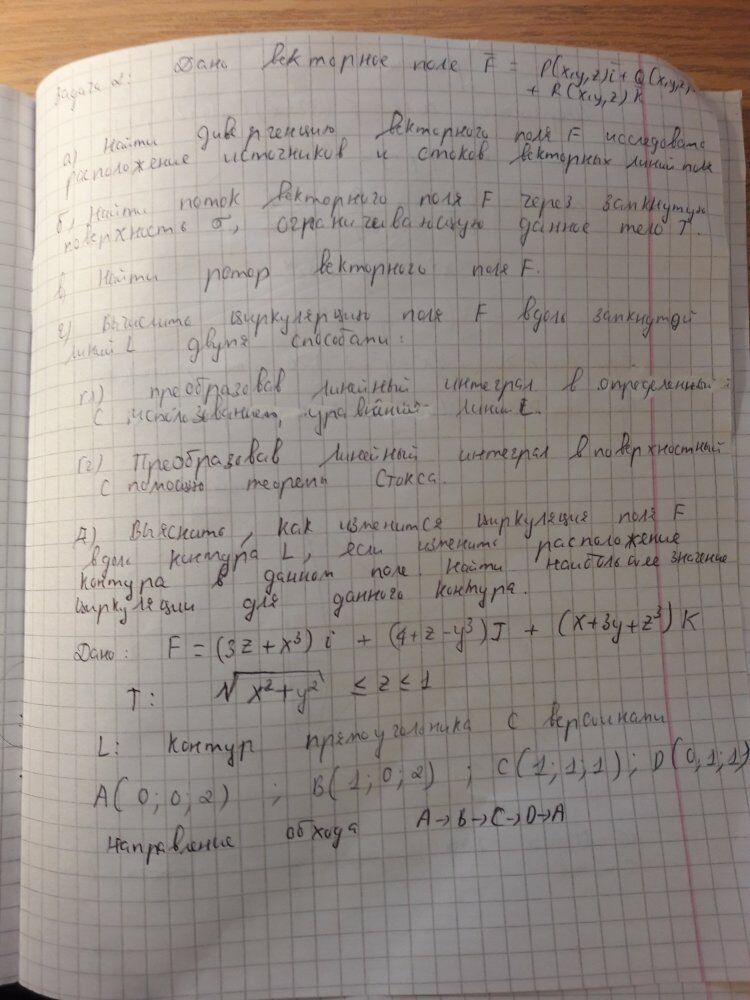 Задача 2: Дано векторное поле F̄ = P(x,y,z)i + Q(x,y,z)
+ R(x,y,z) K
а) Найти дивергенцию векторного поля F исследовать
расположение источников и стоков векторных линий поля
б) Найти поток векторного поля F через замкнутую
поверхность σ, ограничивающую данное тело T.
в) Найти ротор векторного поля F.
г) Вычислить циркуляцию поля F вдоль замкнутой
линий L двумя способами:
г1) преобразовав линейный интеграл в определенный
с использованием, уравнений линии L.
г2) Преобразовав линейный интеграл в поверхностный
с помощью теоремы Стокса.
Д) Выяснить, как изменится циркуляция поля F
вдоль контура L, если изменить расположение
контура в данном поле. Найти наибольшее значение
циркуляции для данного контура.
Дано: F = (3z + x³) i + (4 + z - y³) J + (x + 3y + z³) K
T: √x² + y² ≤ z ≤ 1
L: контур прямоугольника с вершинами
A(0; 0; 2) ; B(1; 0; 2) ; C(1; 1; 1) ; D(0; 1; 1)
Направление обхода A→B→C→D→A